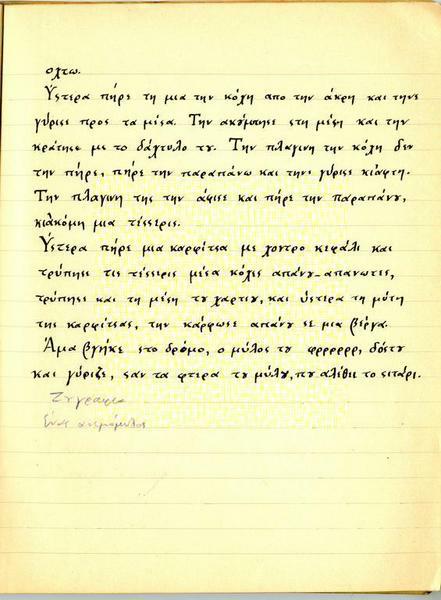 οχτω.
Ύστερα πήρε τη μια την κόχη απο την άκρη και την
γύρισε προς τα μέσα. Την ακούμπησε στη μέση και την
κράτησε με το δάχτυλο του. Την πλαγινη την κόχη δεν
την πήρε, πήρε την παραπάνω και την γύρισε κι'αφτη.
Την πλαγινη της την άφισε και πήρε την παραπάνου,
κι'ακόμη μια τέσσερις.
Ύστερα πήρε μια καρφίτσα με χοντρο κεφάλι και
τρύπησε τις τέσσερις μέσα κόχες απάνου-απανωτες,
τρύπησε και τη μέση του χαρτιου, και ύστερα τη μύτη
της καρφίτσας, την κάρφωσε απάνου σε μια βέργα.
Άμα βγήκε στο δρόμο, ο μύλος του φρρρρρρ, δόστου
και γύριζε, σαν τα φτερα του μύλου, που αλέθει το σιτάρι.
Ζυγραφιὰ
ένας ανεμόμυλος